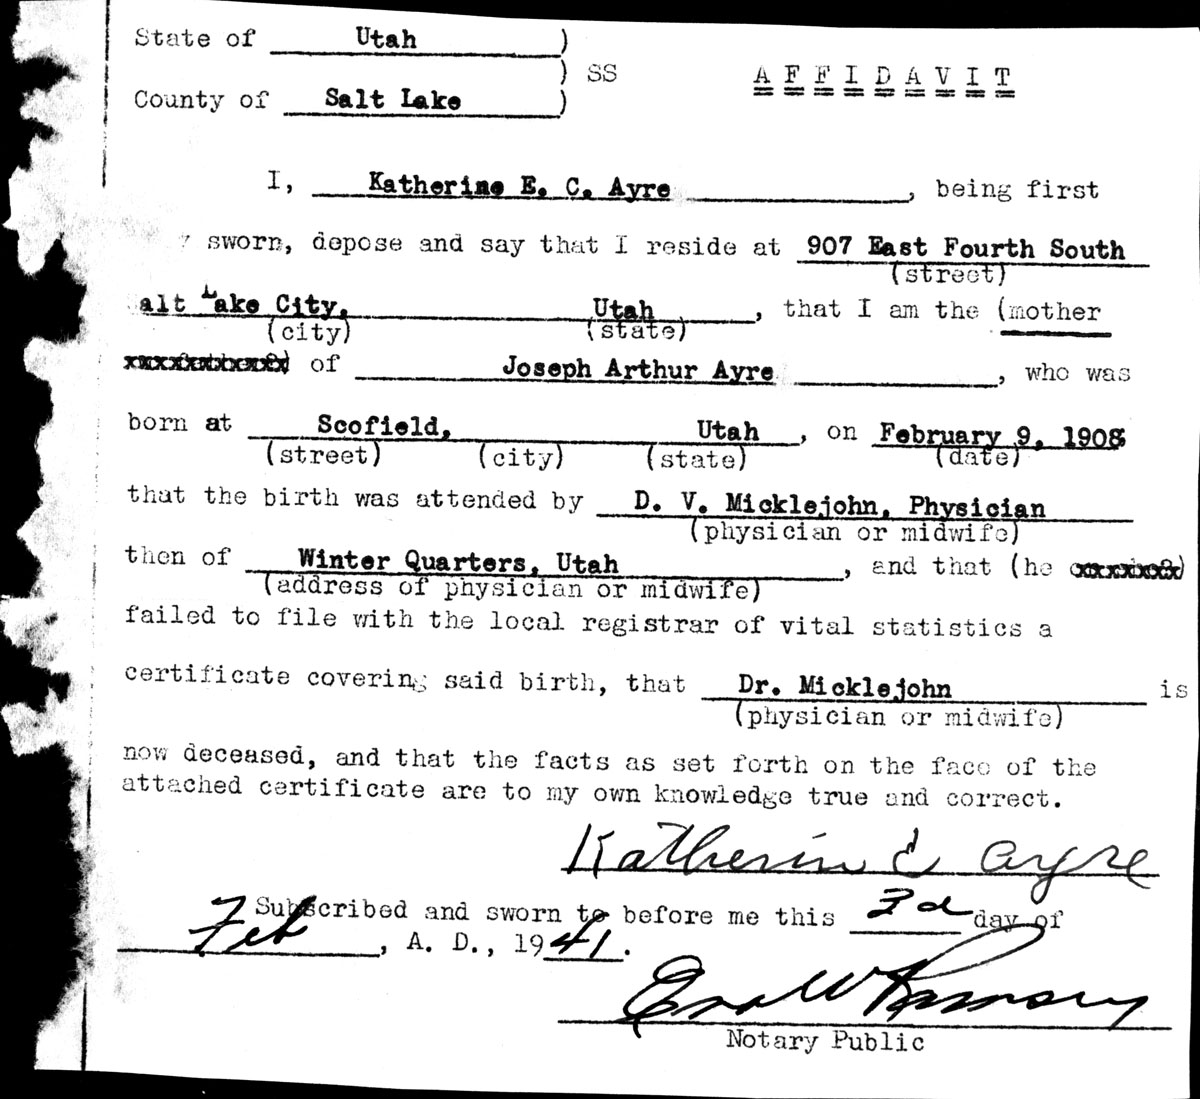 State of Utah )
) SS AFFIDAVIT
County of Salt Lake )
I, Katherine E. C. Ayre, being first
y sworn, depose and say that I reside at 907 East Fourth South
(street)
alt Lake City, Utah, that I am the (mother
(city) (state)
of Joseph Arthur Ayre, who was
born at Scofield, Utah, on February 9, 1908
(street) (city) (state) (date)
that the birth was attended by D. V. Micklejohn, Physician
(physician or midwife)
then of Winter Quarters, Utah, and that (he
(address of physician or midwife)
failed to file with the local registrar of vital statistics a
certificate covering said birth, that Dr. Micklejohn is
(physician or midwife)
now deceased, and that the facts as set forth on the face of the
attached certificate are to my own knowledge true and correct.
Katherin E Ayre
Subscribed and sworn to before me this 3d day of
Feb, A. D., 1941.
W Ramsey
Notary Public